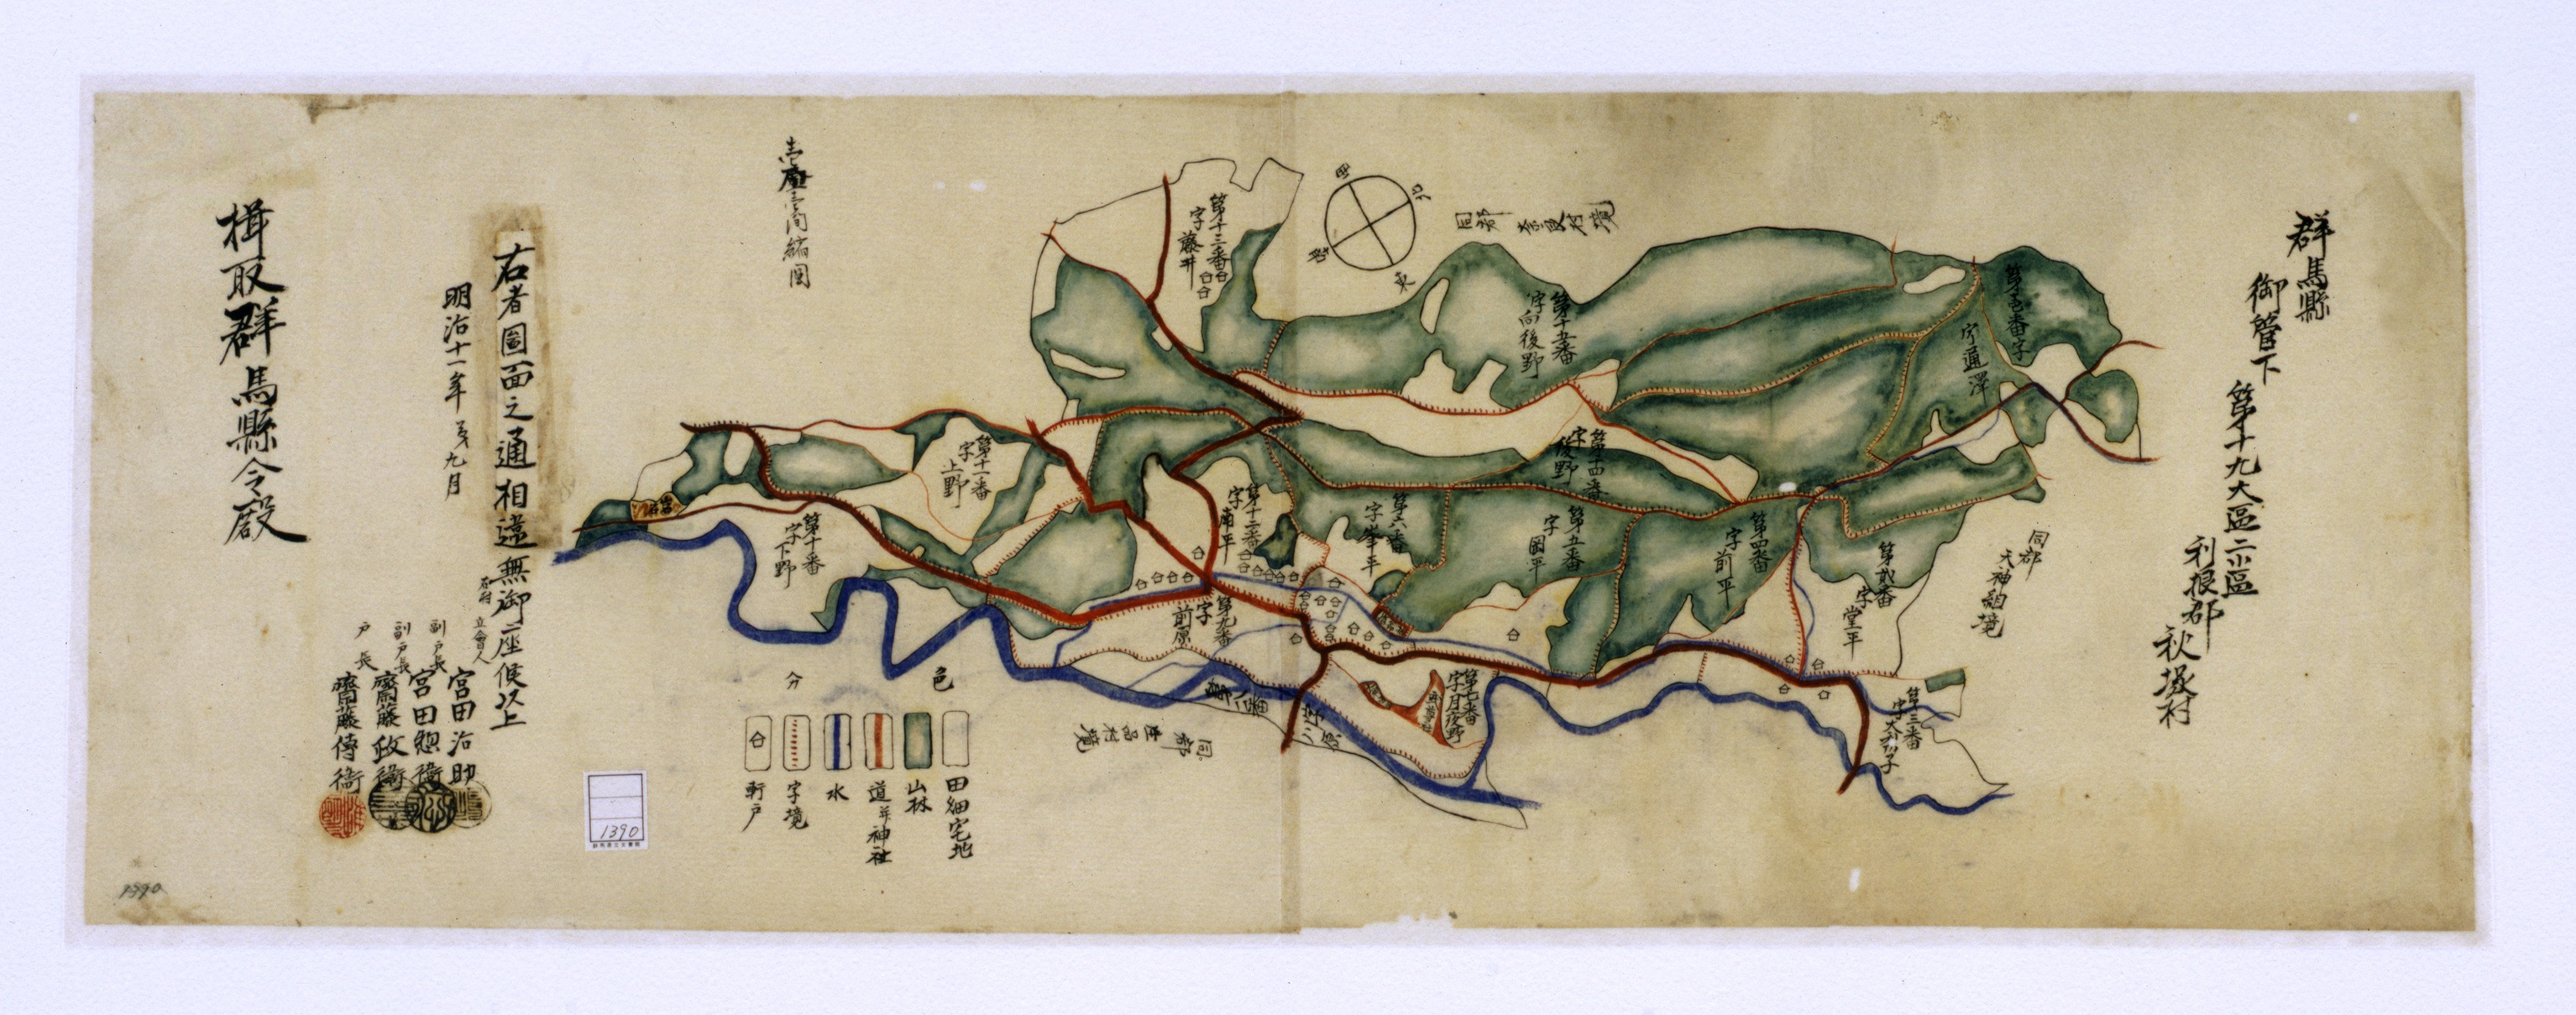 群馬縣
御管下
第十九大區二小區
利根郡
秋塚村
同郡
天神組境
同郡 奈良村境
北
東
第壱番字
字通澤
第十五番
字向後野
第十四番
字後野
第弐番
字堂平
第三番
第四番
字前平
第五番
字岡平
第六番
字峯平
第七番
第九番
字前原
第十番
字下野
第十一番
字上野
第十二番
字南平
第十三番
字藤井
色
分
田畑宅地
山林
道并神社
水
字境
軒戸
右者圖面之通相違無御座候以上
明治十一年
九月
右村
立會人
宮田治助
副戸長
宮田惣衛
副戸長
齋藤政衛
戸長
齋藤傳衛
楫取群馬縣令殿
1390
群馬県立文書館
1390